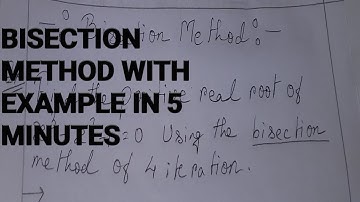 Bisection Method :-
BISECTION
METHOD WITH
EXAMPLE IN 5
MINUTES
real root of
=0 Using the bisection
method of 4 iteration.